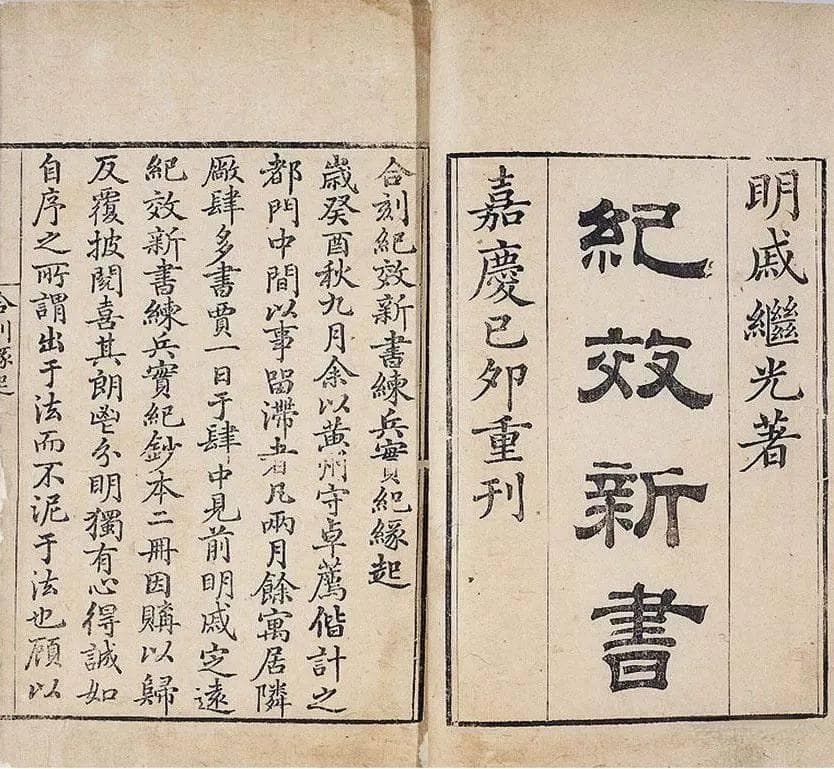 明戚繼光著
紀效新書
嘉慶己卯重刊
合刻紀效新書練兵實紀緣起
歲癸酉秋九月余以黄州守卓薦偕計之
都門中間以事留滯者凡兩月餘寓居隣
厰肆多書賈一日于肆中見前明戚定遠
紀效新書練兵實紀鈔本二冊因購以歸
反覆披閱喜其朗鬯分明獨有心得誠如
自序之所謂出于法而不泥于法也顧以
合刊緣起